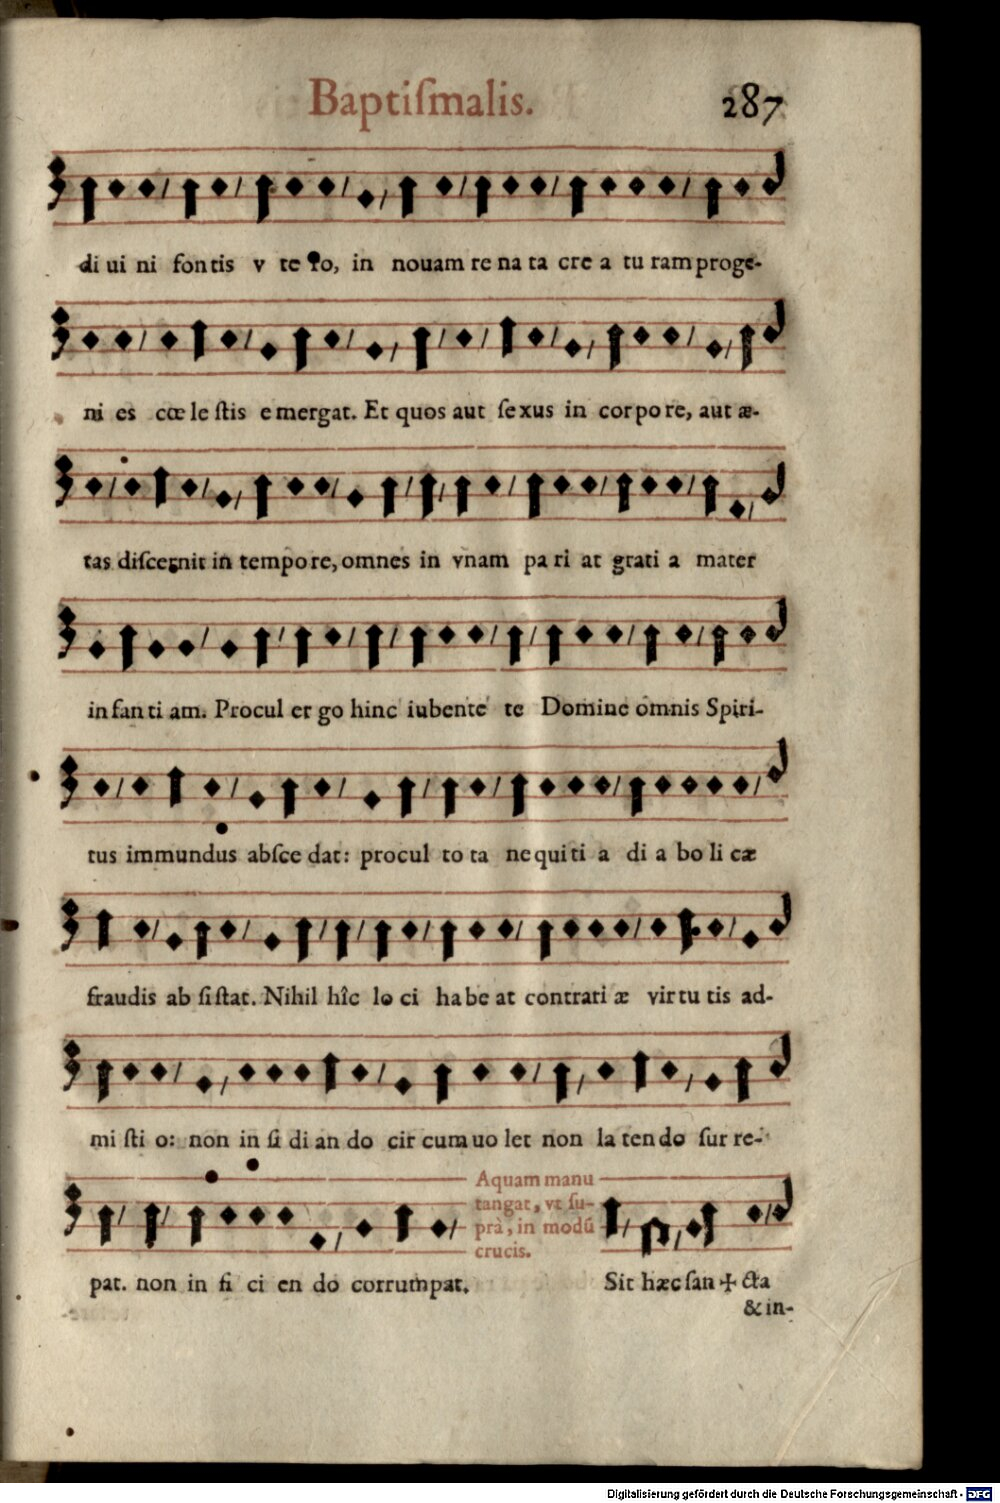 Baptiſmalis. 287
di ui ni fontis v te ro, in nouam re na ta cre a tu ram proge-
ni es cœ le ſtis e mergat. Et quos aut ſexus in corpo re, aut æ-
tas diſcernit in tempo re, omnes in vnam pa ri at grati a mater
in fan ti am. Procul er go hinc iubente te Domine omnis Spiri-
tus immundus abſce dat: procul to ta nequiti a di a bo li cæ
fraudis ab ſi ſtat. Nihil hîc lo ci ha be at contrari æ vir tu tis ad-
mi ſti o: non in ſi di an do cir cumuo let non la ten do ſur re-
Aquam manu
tangat, vt ſu-
prà, in modũ
crucis.
pat. non in fi ci en do corrumpat. Sit hæc ſan ✠ cta
& in-
Digitalisierung gefördert durch die Deutsche Forschungsgemeinschaft - DFG